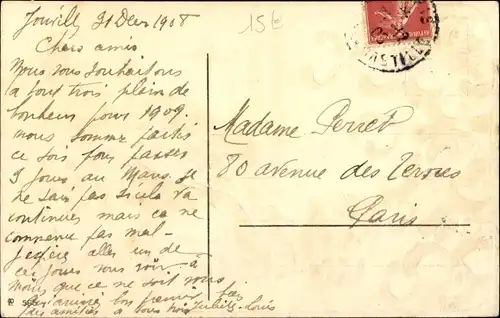 31 Dec 1908
15€
Chers amis
Nous vous souhaitons
a tout trois plein de
bonheur pour 1909.
nous somme partis
ce soir pour passer
3 jours au Mans. Je
ne sais pas si cela va
continuer mais ça ne
commence pas mal.
J'espère aller un de
ces jours vous voir à
moins que ce ne soit vous
bons
amitiés a tous trois Juliette Louis
Madame Perret
80 avenue des Ternes
Paris